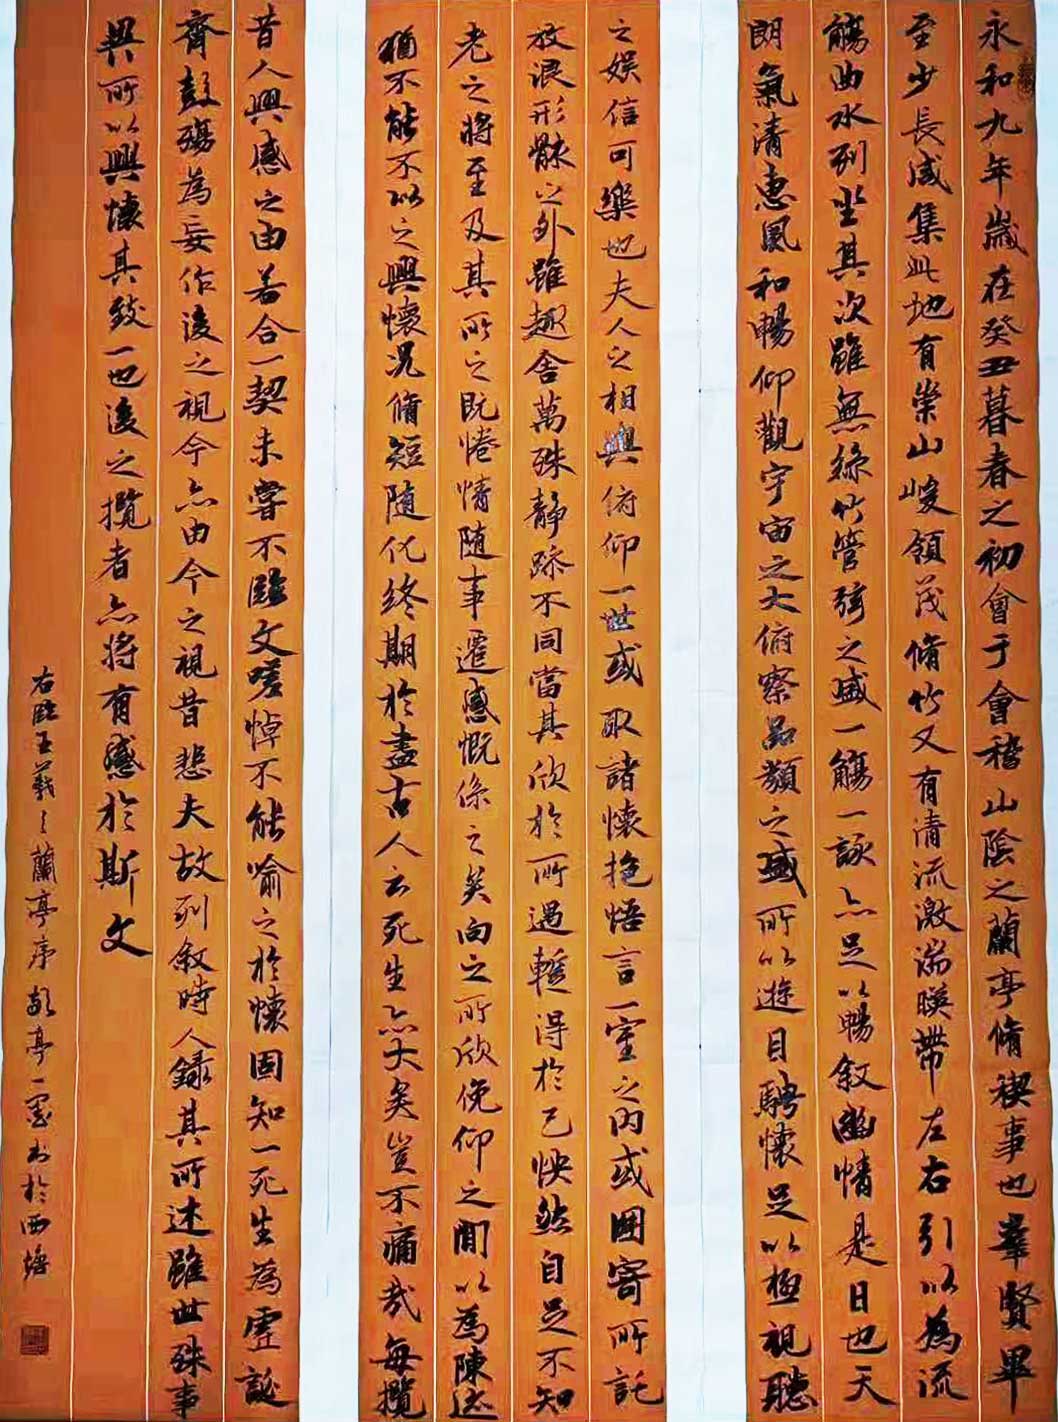 永和九年歲在癸丑暮春之初會于會稽山陰之蘭亭脩禊事也羣賢畢
至少長咸集此地有崇山峻領茂脩竹又有清流激湍暎帶左右引以為流
觴曲水列坐其次雖無絲竹管弦之盛一觴一詠亦足以暢敘幽情是日也天
朗氣清惠風和暢仰觀宇宙之大俯察品類之盛所以遊目騁懷足以極視聽
之娛信可樂也夫人之相與俯仰一世或取諸懷抱悟言一室之內或因寄所託
放浪形骸之外雖趣舍萬殊静躁不同當其欣於所遇蹔得於己怏然自足不知
老之將至及其所之既惓情随事遷感慨係之矣向之所欣俛仰之閒以為陳迹
猶不能不以之興懷況脩短随化終期於盡古人云死生亦大矣豈不痛哉每攬
昔人興感之由若合一契未嘗不臨文嗟悼不能喻之於懷固知一死生為虛誕
齊彭殤為妄作後之視今亦由今之視昔悲夫故列敘時人錄其所述雖世殊事
異所以興懷其致一也後之攬者亦將有感於斯文
右臨王羲之蘭亭序敬亭一墨书於西塘